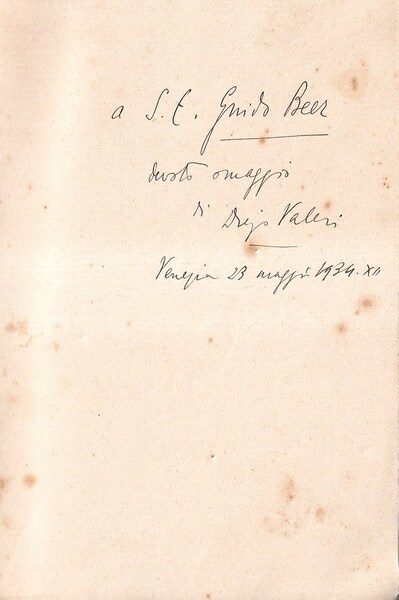 a S. E. Guido Beer
devoto omaggio
di Diego Valeri
Venezia 23 maggio 1934. XII